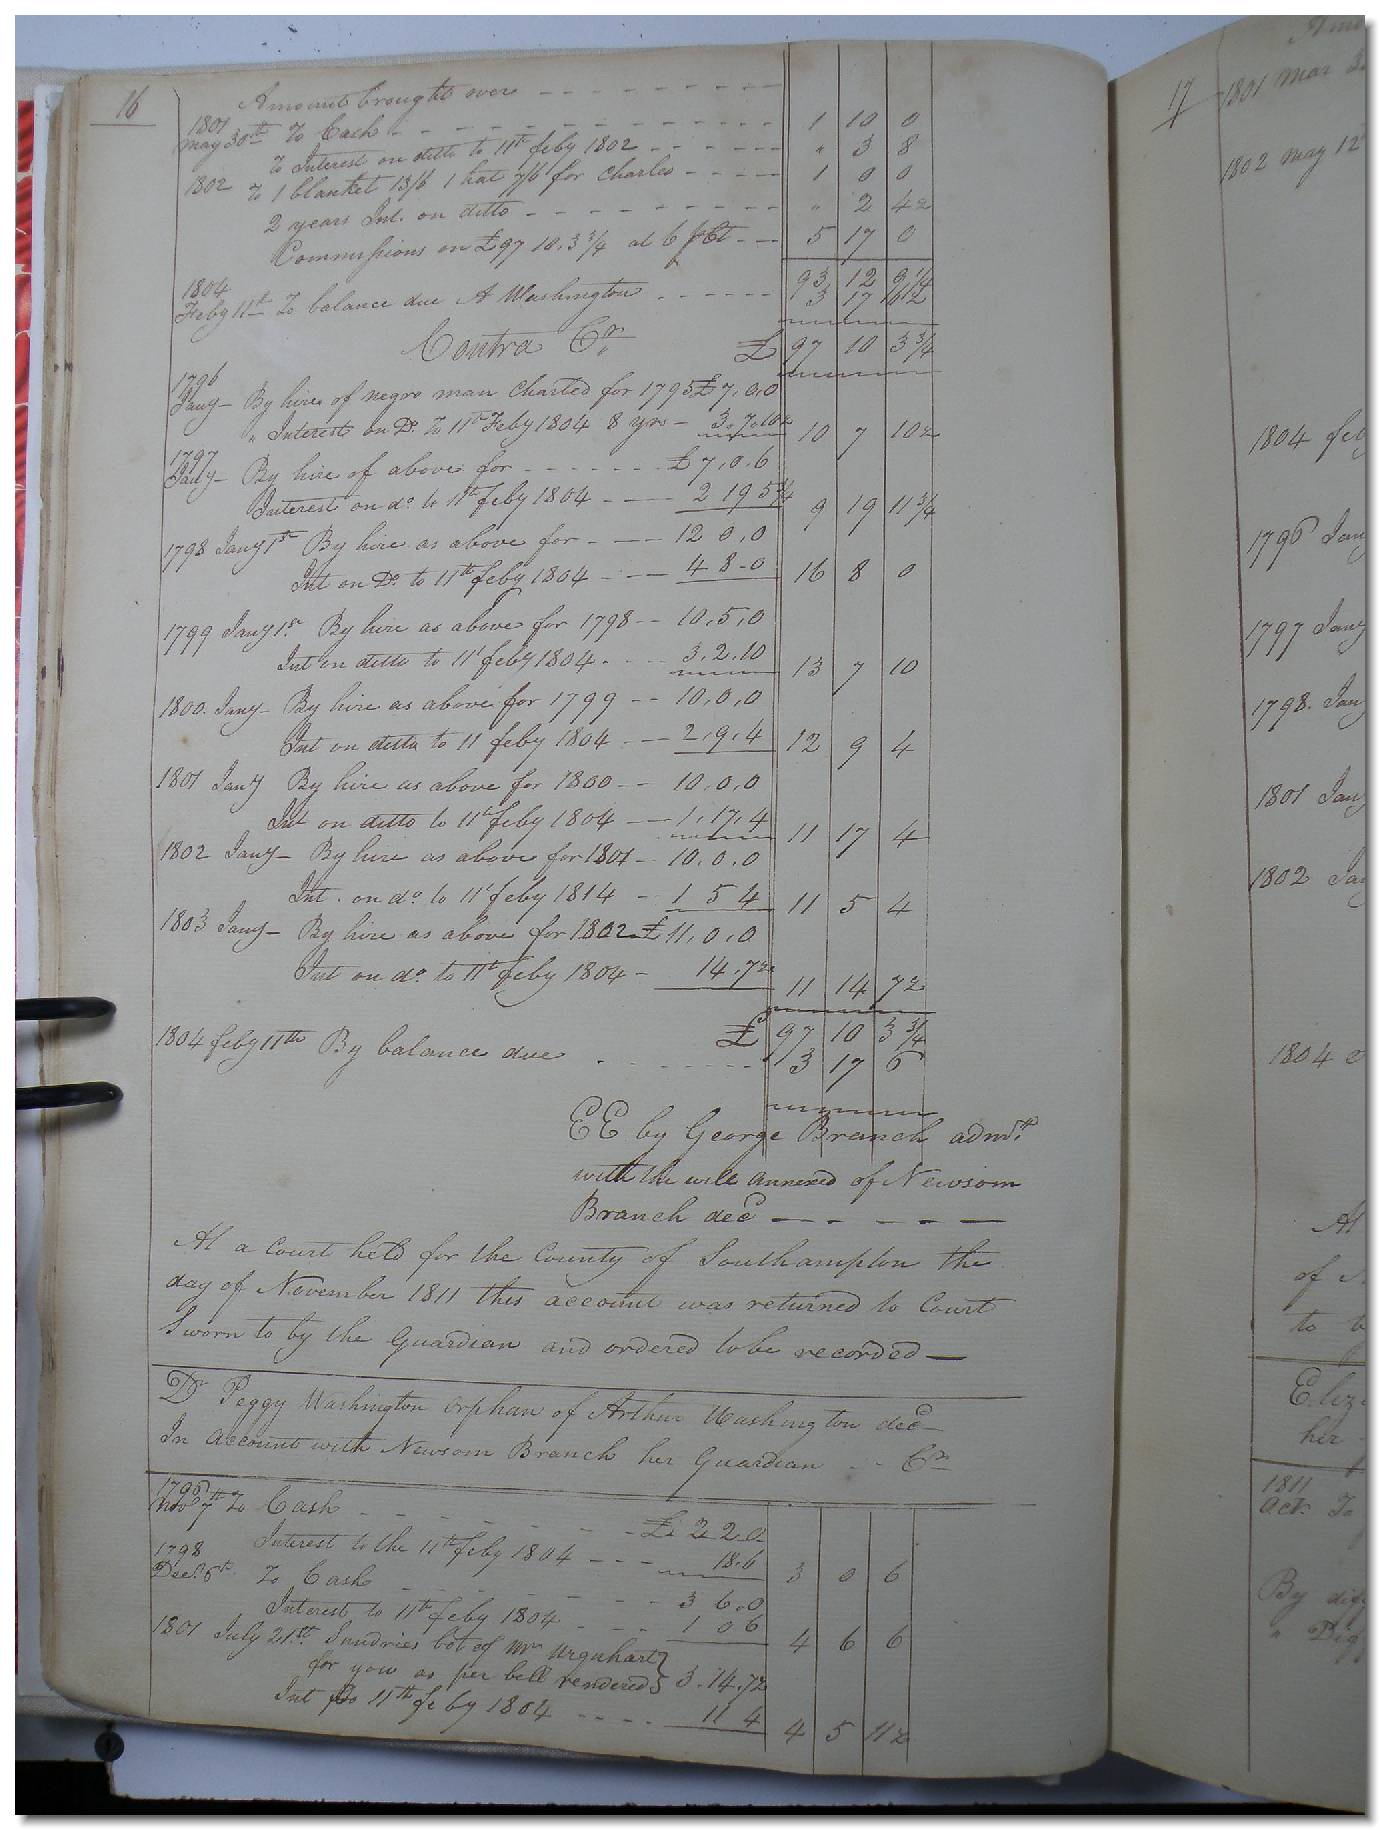 16
Amount brought over
1801
May 30th To Cash 1 10 0
To Interest on ditto to 11th feby 1802 " 3 8
1802 To 1 blanket 13/6 1 hat 7/6 for Charles 1 0 0
2 years Int. on ditto " 2 4½
Commissions on £97 10. 3¾ at 6 pCt 5 17 0
93 12 9¼
1804
Feby 11th To balance due A Washington 3 17 6½
Contra Cr. £ 97 10 3¾
1796
Jany By hire of negro man Charled for 1795 £7.0.0
" Interest on Do. To 11th Feby 1804 8 yrs 3.7.10½ 10 7 10½
1797
Jany By hire of above for £7.0.6
Interest on do. to 11th feby 1804 2 19 5¼ 9 19 11¾
1798 Jany 1st By hire as above for 12 0.0
Int on Do. to 11th feby 1804 4 8.0 16 8 0
1799 Jany 1st. By hire as above for 1798 10.5.0
Int on ditto to 11t feby 1804 3.2.10 13 7 10
1800. Jany By hire as above for 1799 10.0.0
Int on ditto to 11 feby 1804 2.9.4 12 9 4
1801 Jany By hire as above for 1800 10.0.0
Int on ditto to 11th feby 1804 1.17.4 11 17 4
1802 Jany By hire as above for 1801 10.0.0
Int. on do. to 11t feby 1814 1 5 4 11 5 4
1803 Jany By hire as above for 1802 £11.0.0
Int on do. to 11t feby 1804 14.7½ 11 14 7½
£ 97 10 3¾
1804 feby 11th By balance due 3 17 6
EE by George Branch admr.
with the will annexed of Newsom
Branch decd
At a Court held for the County of Southampton the
day of November 1811 this account was returned to Court
Sworn to by the Guardian and ordered to be recorded
Dr Peggy Washington Orphan of Arthur Washington decd
In account with Newsom Branch her Guardian Cr
1796
Nov 7th To Cash £2 2 0
Interest to the 11th feby 1804 18.6 3 0 6
1798
Decr. 6th. To Cash 3 6.0
Interest to 11th feby 1804 1 0 6 4 6 6
1801 July 21st. Sundries bot of Mr Urquhart
for you as per bill rendered 3.14.7½
Int to 11th feby 1804 11 4 4 5 11½
17
1801 Mar
1802 May 12
1804 feb
1796 Jan
1797 Jany
1798. Jan
1801 Jan
1802 Jan
1804
At
of
to
Eliz
her
1811
Oct. To
By
"